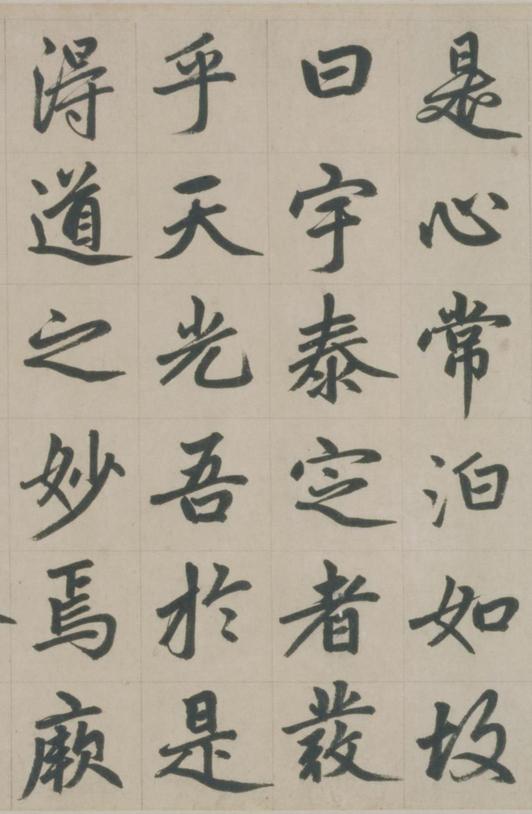 是心常泊如故
曰宇泰定者發
乎天光吾於是
淂道之妙焉廟